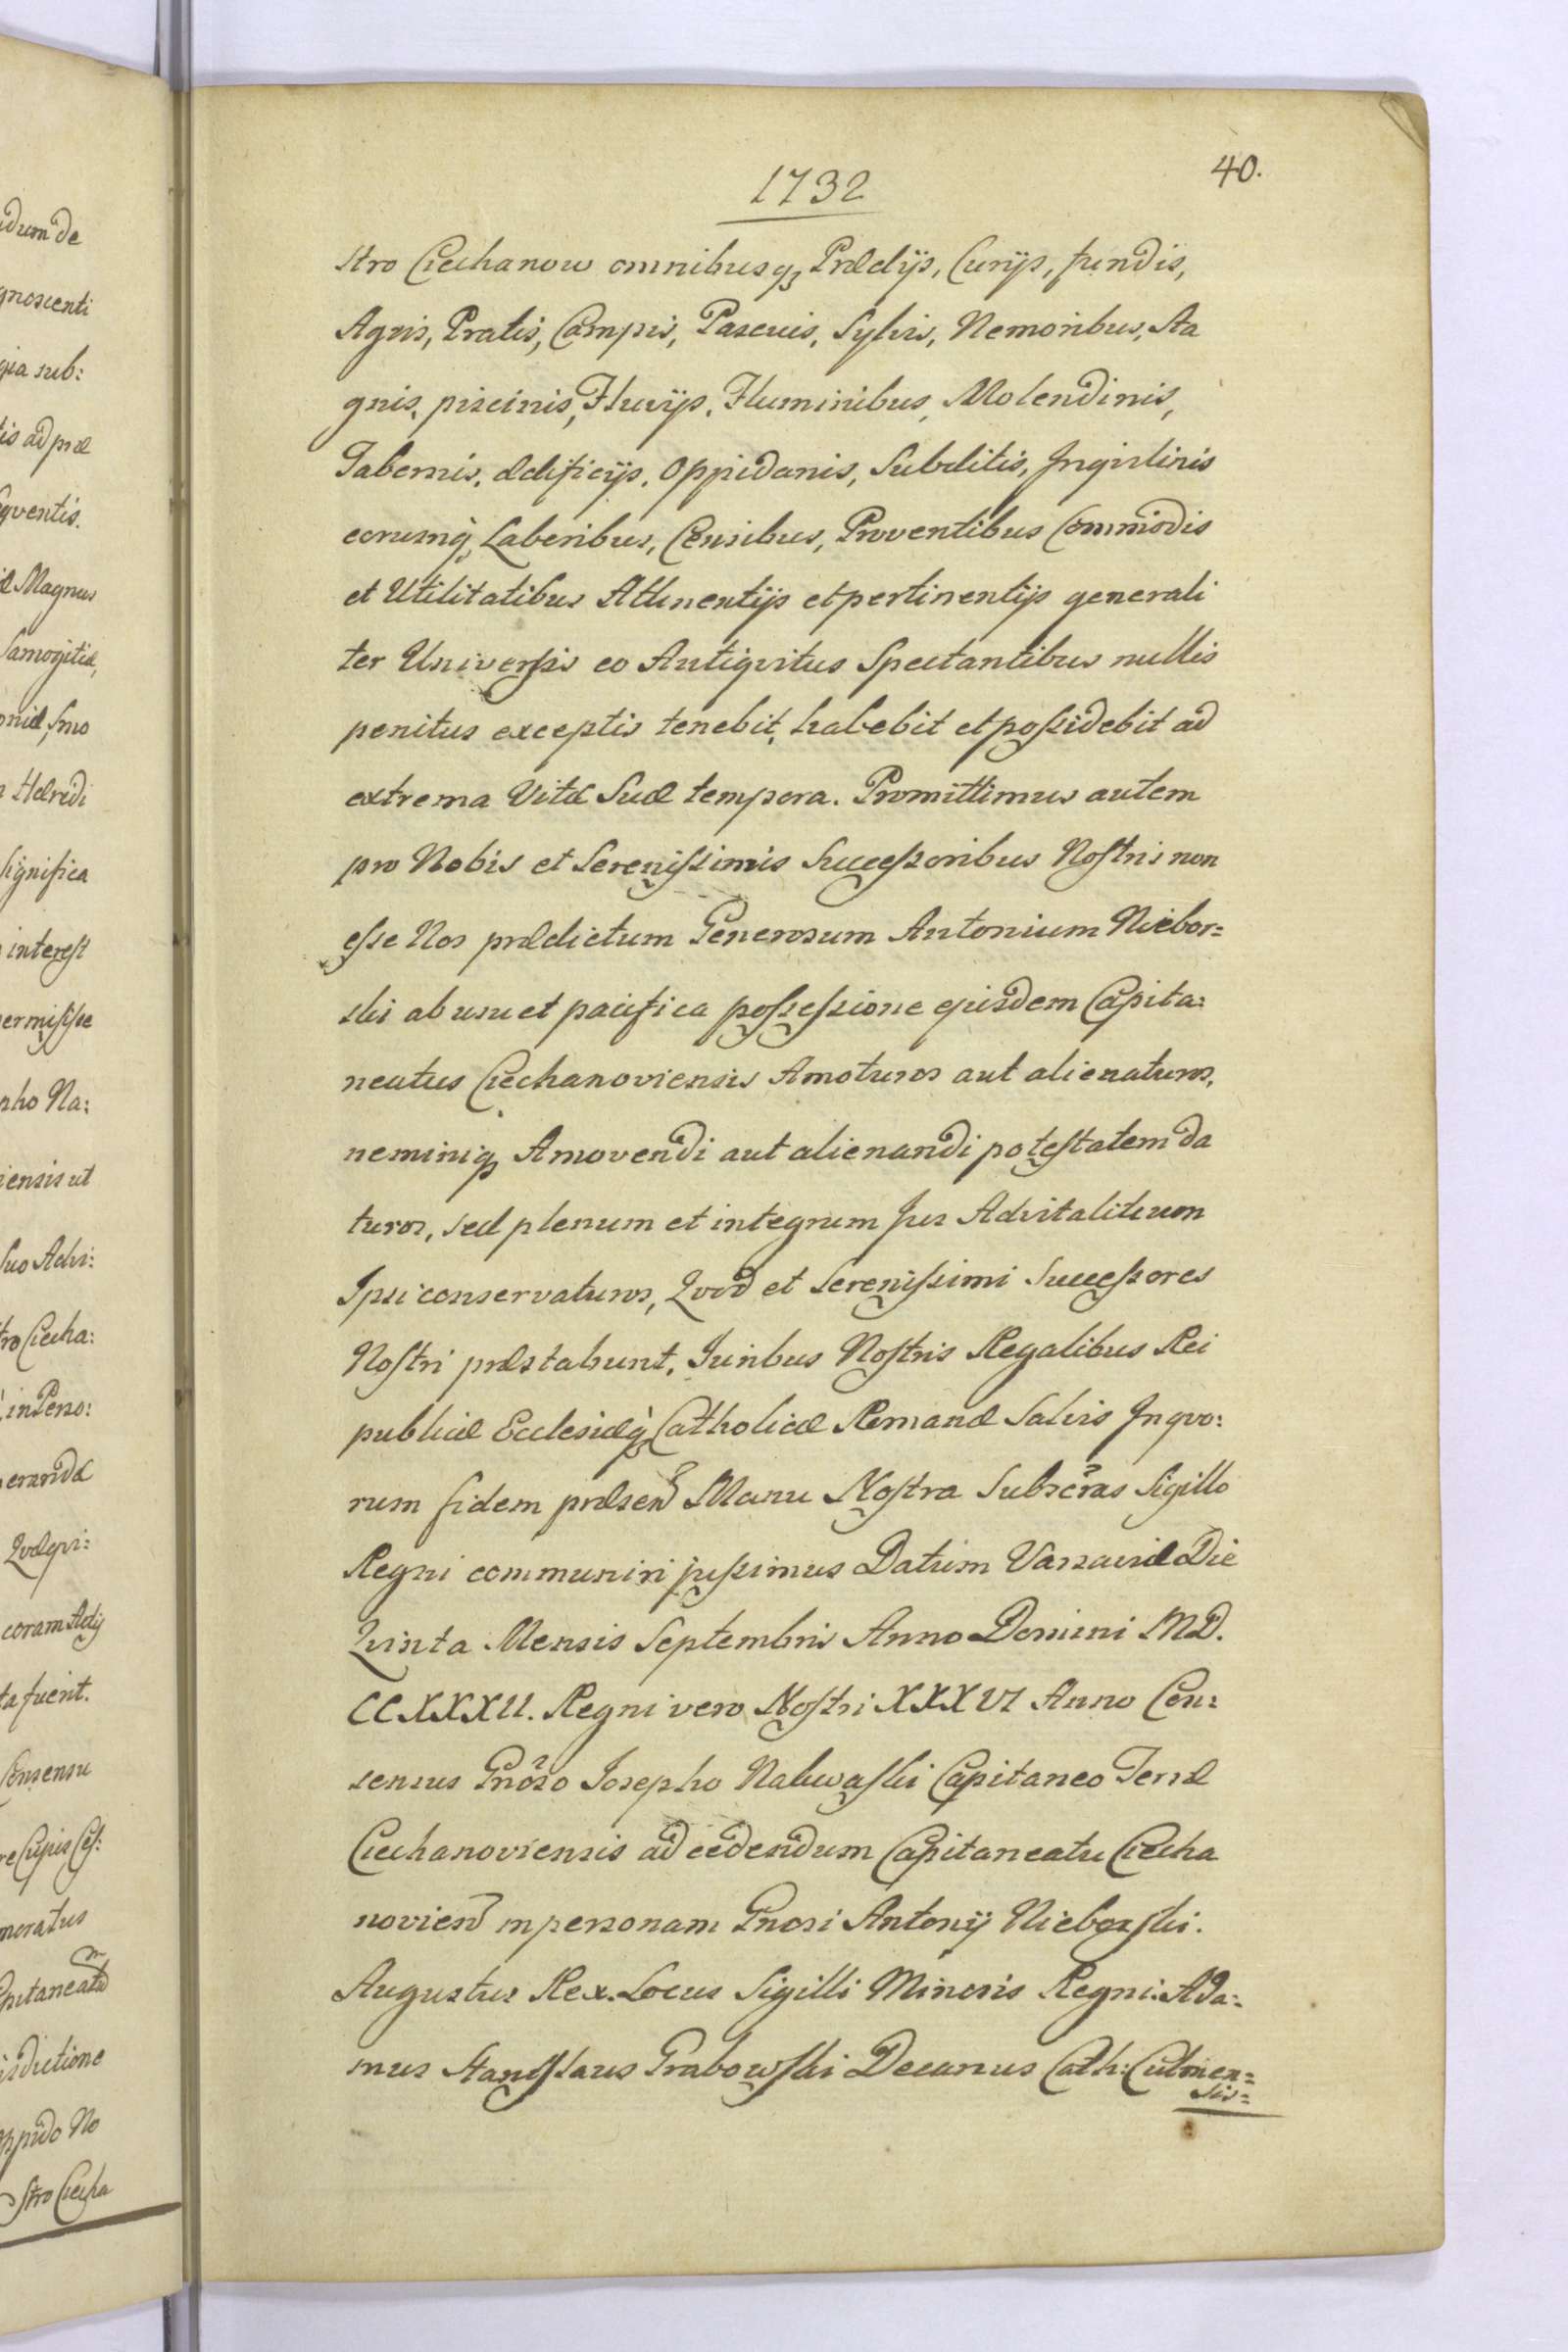 idum de
gnoscenti
gia sub:
tis ad præ
eqventis.
æ Magnus
Samogitiæ,
oniæ, Smo
Hæredi
Significa
interest
permisisse
epho Na:
iensis ut
suo Advi:
tro Ciecha:
in Perso:
erandæ
Qvæqvi:
coram Actis
ta fuerit.
Consensu
re Cujus Ces:
moratus
apitaneatū
isdictione
oppido No
stro Ciecha
1732
40.
stro Ciechanow omnibusq, Prædijs, Curijs, fundis,
Agris, Pratis, Campis, Pascuis, Sylvis, Nemoribus, Sta
gnis, piscinis, Fluvijs, Fluminibus, Molendinis,
Tabernis, ædificijs, Oppidanis, Subditis, Inqvilinis
eorumq, Laboribus, Censibus, Proventibus Commodis
et Utilitatibus Attinentijs et pertinentijs generali
ter Universis eo Antiqvitus Spectantibus nullis
penitus exceptis tenebit, habebit et possidebit ad
extrema Vitæ Suæ tempora. Promittimus autem
pro Nobis et Serenissimis Successoribus Nostris non
esse Nos prædictum Generosum Antonium Niebor=
ski ab usu et pacifica possessione ejusdem Capita:
neatus Ciechanoviensis Amoturos aut alienaturos,
neminiq, Amovendi aut alienandi potestatem da
turos, sed plenum et integrum Jus Advitalitium
Ipsi conservaturos, Qvod et Serenissimi Successores
Nostri præstabunt. Juribus Nostris Regalibus Rei
publicæ Ecclesiæq, Catholicæ Romanæ Salvis Inqvo:
rum fidem præsen Manu Nostra Subscras Sigillo
Regni communiri jussimus Datum Varsaviæ Die
Qvinta Mensis Septembris Anno Domini MD.
CCXXXII. Regni vero Nostri XXXVI Anno Con:
sensus Gnoso Josepho Nakwaski Capitaneo Terræ
Ciechanoviensis ad cedendum Capitaneatu Ciecha
novien in personam Gnosi Antonij Nieborski.
Augustus Rex. Locus Sigilli Minoris Regni. Ada:
mus Stanislaus Grabowski Decanus Cath: Culmen=
sis=